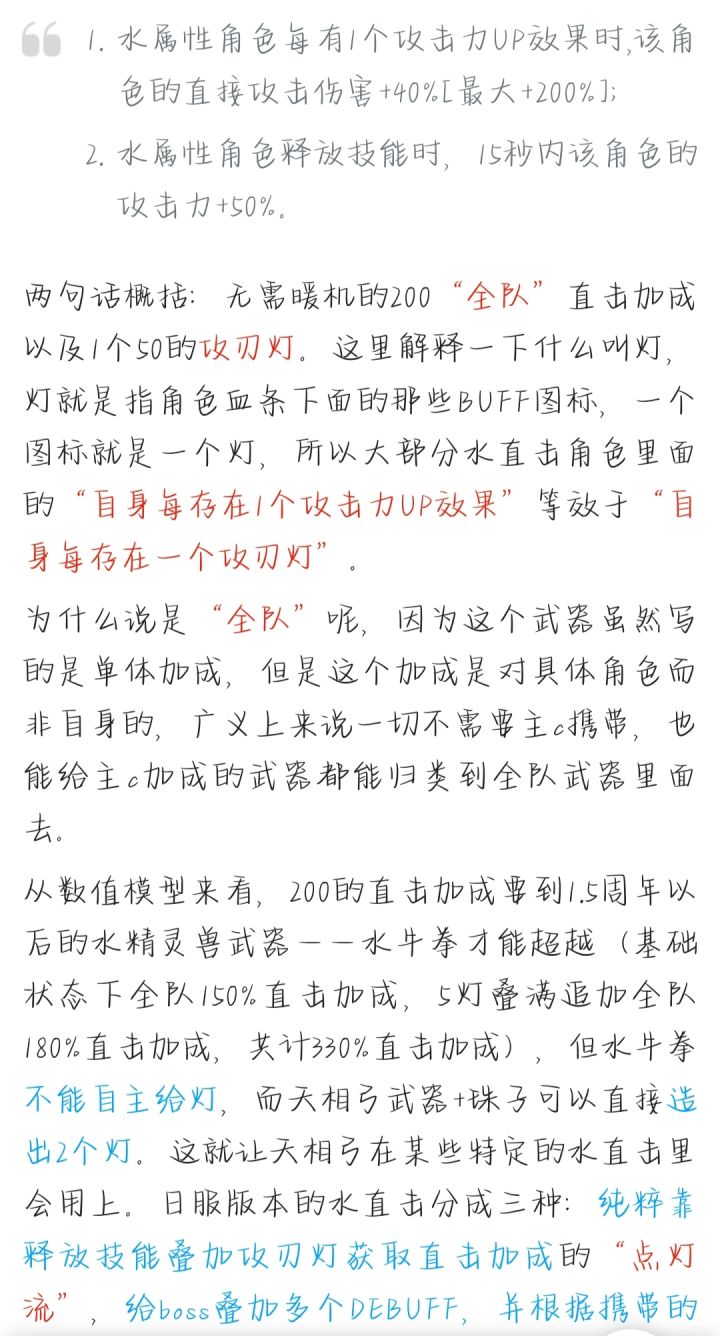 1. 水属性角色每有1个攻击力UP效果时,该角
色的直接攻击伤害+40%[最大+200%];
2. 水属性角色释放技能时，15秒内该角色的
攻击力+50%。
两句话概括：无需暖机的200“全队”直击加成
以及1个50的攻刃灯。这里解释一下什么叫灯，
灯就是指角色血条下面的那些BUFF图标，一个
图标就是一个灯，所以大部分水直击角色里面
的“自身每存在1个攻击力UP效果”等效于“自
身每存在一个攻刃灯”。
为什么说是“全队”呢，因为这个武器虽然写
的是单体加成，但是这个加成是对具体角色而
非自身的，广义上来说一切不需要主c携带，也
能给主c加成的武器都能归类到全队武器里面
去。
从数值模型来看，200的直击加成要到1.5周年以
后的水精灵兽武器——水牛拳才能超越（基础
状态下全队150%直击加成，5灯叠满追加全队
180%直击加成，共计330%直击加成），但水牛拳
不能自主给灯，而天相弓武器+珠子可以直接造
出2个灯。这就让天相弓在某些特定的水直击里
会用上。日服版本的水直击分成三种：纯粹靠
释放技能叠加攻刃灯获取直击加成的“点灯
流”，给boss叠加多个DEBUFF，并根据携带的